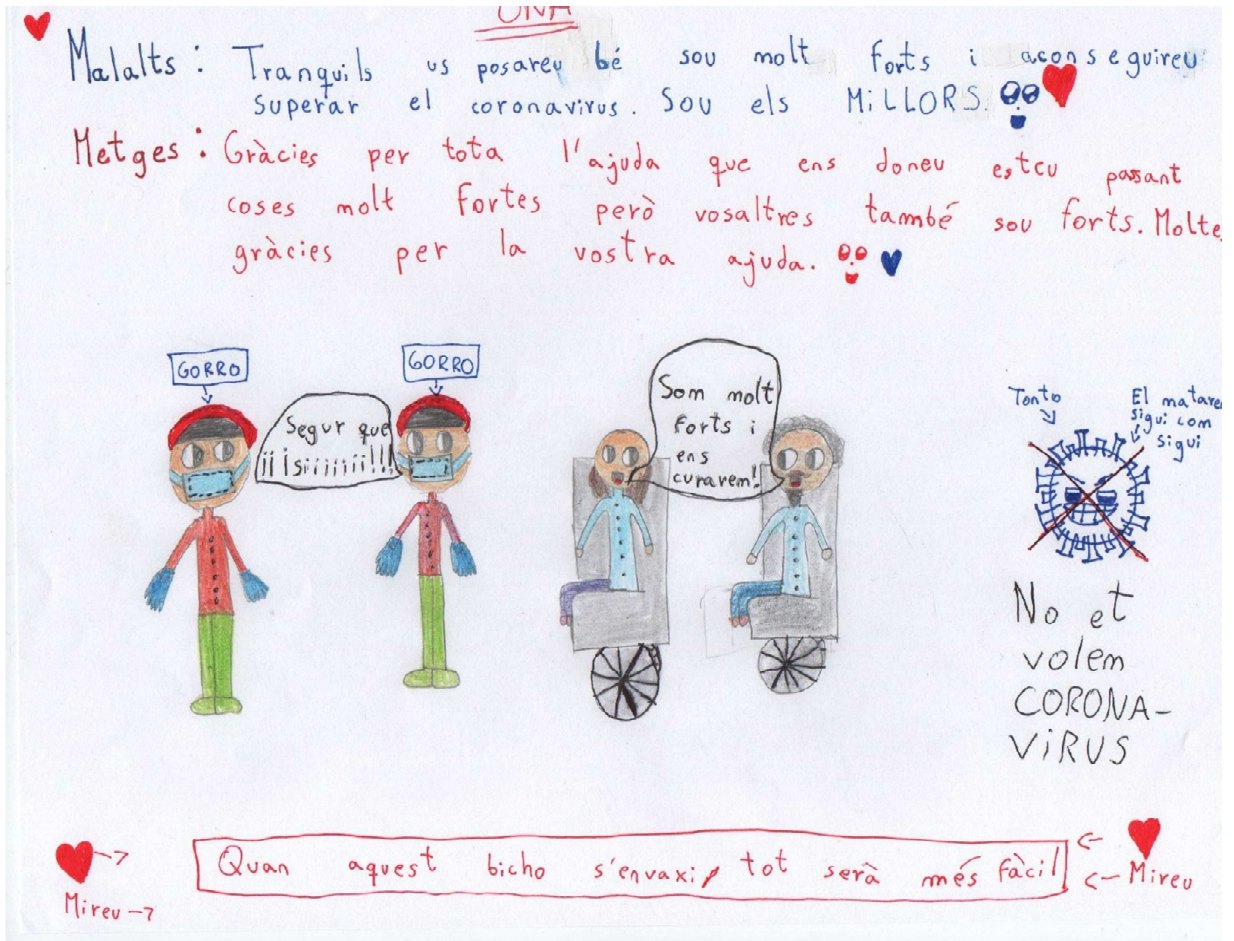 UNA
Malalts: Tranquils us posareu bé sou molt forts i aconseguireu
superar el coronavirus. Sou els MiLLORS.
Metges: Gràcies per tota l'ajuda que ens doneu esteu passant
coses molt fortes però vosaltres també sou forts. Molte
gràcies per la vostra ajuda.
GORRO
GORRO
Segur que
¡¡¡siiiiiii!!!
Som molt
forts i
ens
curarem!
Tonto
El matare
sigui com
sigui
No et
volem
CORONA-
ViRUS
Quan aquest bicho s'envaxi, tot serà més fàcil
Mireu
Mireu